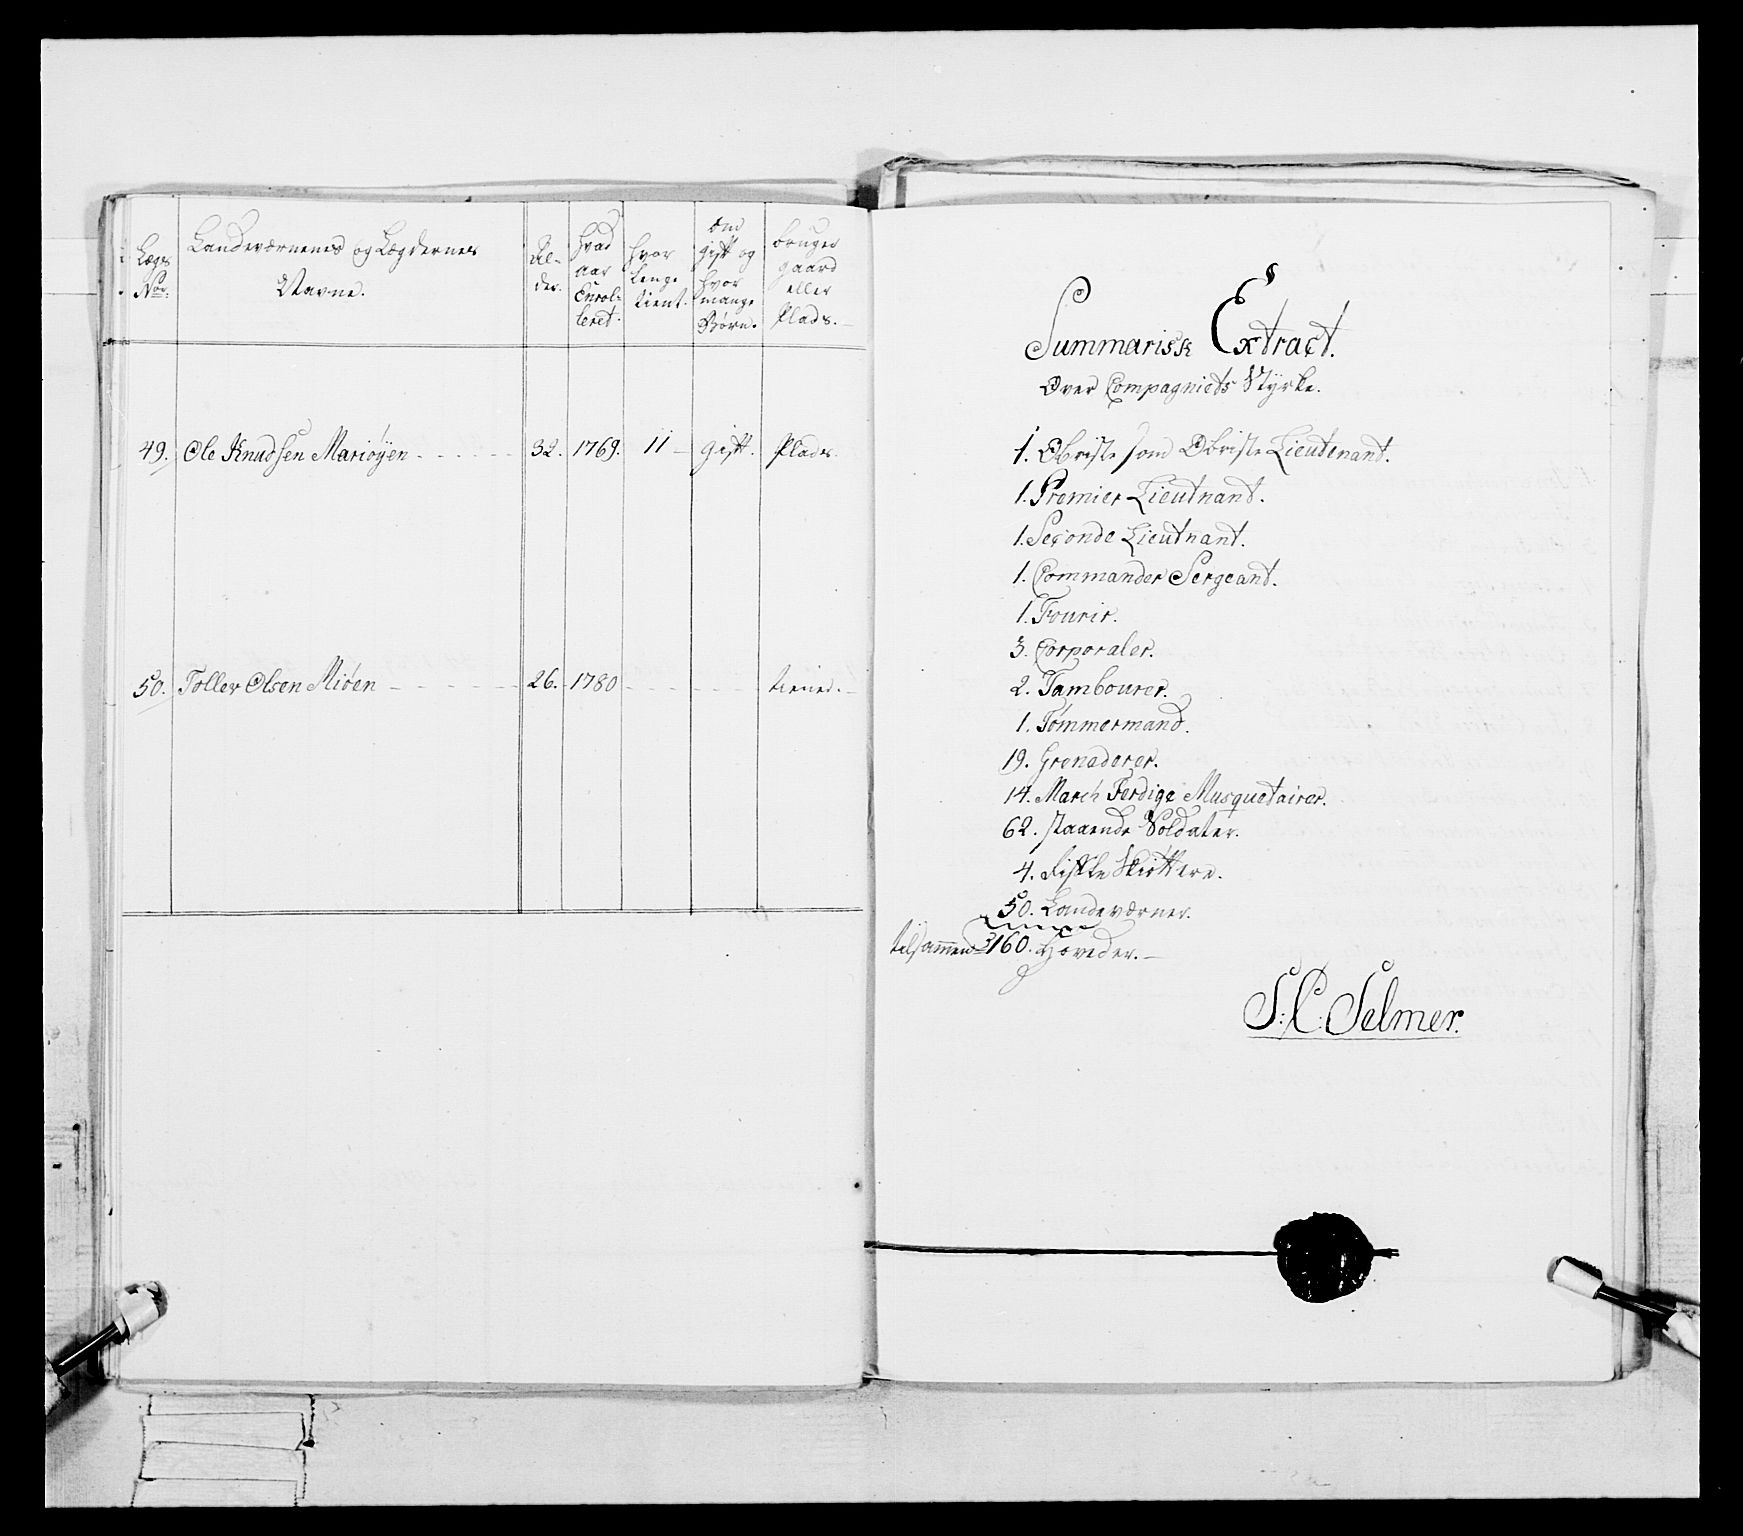 Lægs Nor:
Landeværnenes og Lægdernes Navne.
Al-
der.
Hvad
aar
Enrol-
leret.
Hvor
lenge
tient.
Om
gift og
hvor
mange
Børn.
bruger
gaard
eller
Plads.
49. Ole Knudsen Mariøyen - - - - - 32. 1769. 11 - gift. Plads.
50. Toller Olsen Miøen - - - - - 26. 1780 - - - - - tiener. -
Summarisk Extract.
Over Compagniets Styrke.
1. Obriste som Obriste Lieutenant.
1. Premier Lieutnant.
1. Seconde Lieutnant.
1. Commander Sergeant.
1. Fourir.
3. Corporaler.
2. Tambourer.
1. Tømmermand.
19. Grenaderer.
14. March Færdige Musquetairer.
62. staaende Soldater.
4. Skiøttere.
50. Landeværner.
tilsammen 160. Hoveder. -
S: C: Selmer.